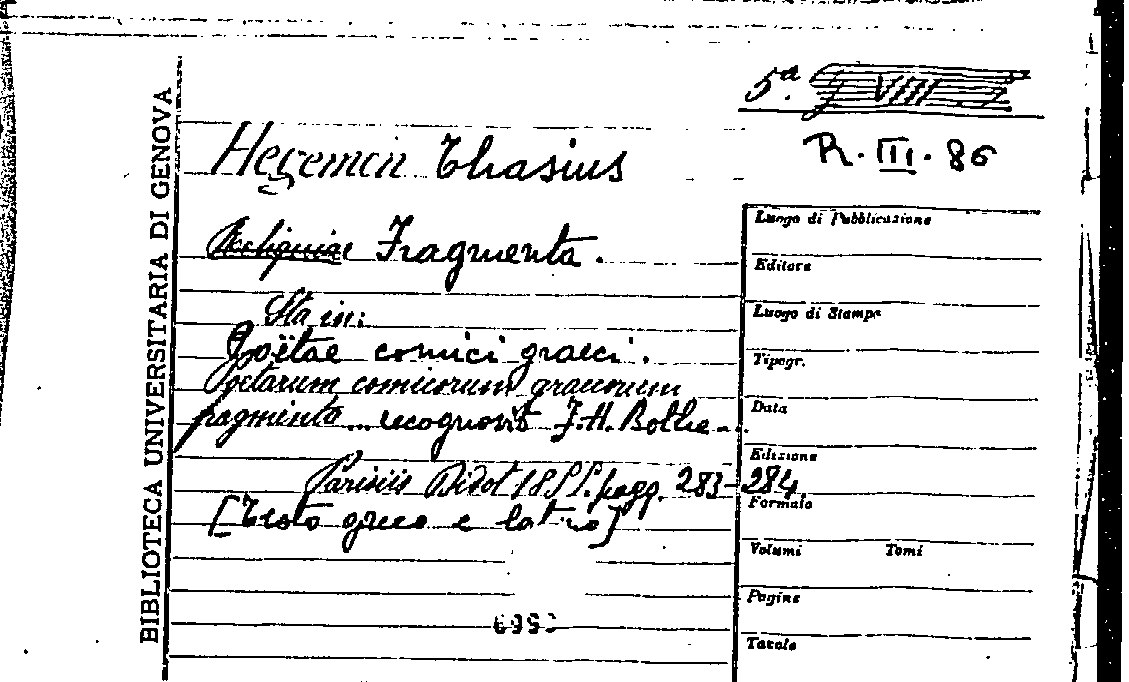 5ª. VIII
R. III. 86
BIBLIOTECA UNIVERSITARIA DI GENOVA
Hegemon Thasius
Reliquiae Fragmenta.
Sta in:
Poëtae comici graeci.
Poetarum comicorum graecorum
fragmenta... recognovit F.H. Bothe...
Parisiis Didot 1855. pagg. 283-284
[Testo greco e latino]
Luogo di Pubblicazione
Editore
Luogo di Stampa
Tipogr.
Data
Edizione
Formato
Volumi Tomi
Pagine
Tavole